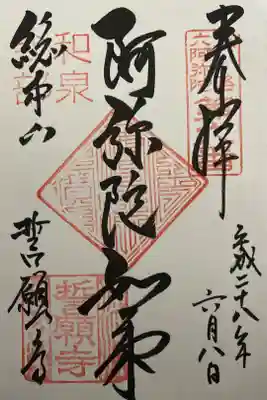 奉拝
六阿弥陀
平成二十八年
六月八日
阿弥陀如来
和泉
式部
総本山
誓願寺
誓願寺